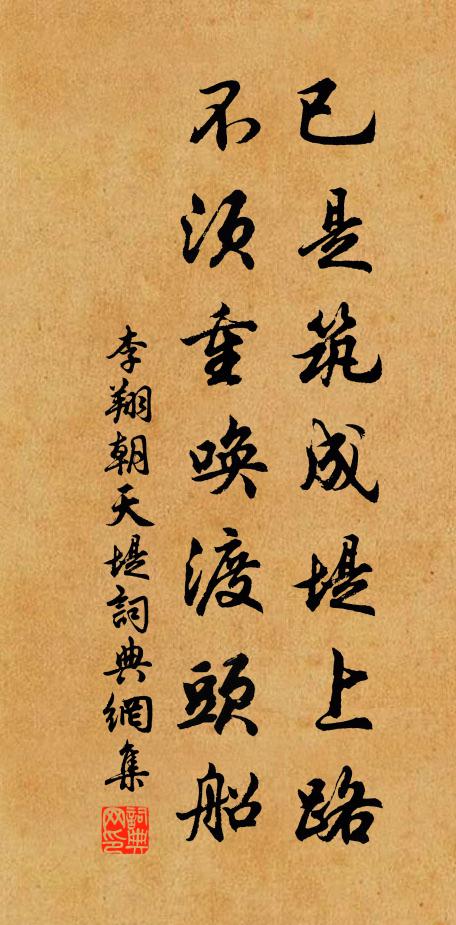 已是筑成堤上路
不须重唤渡头船
李翔朝天堤詞典網集
詞典网印